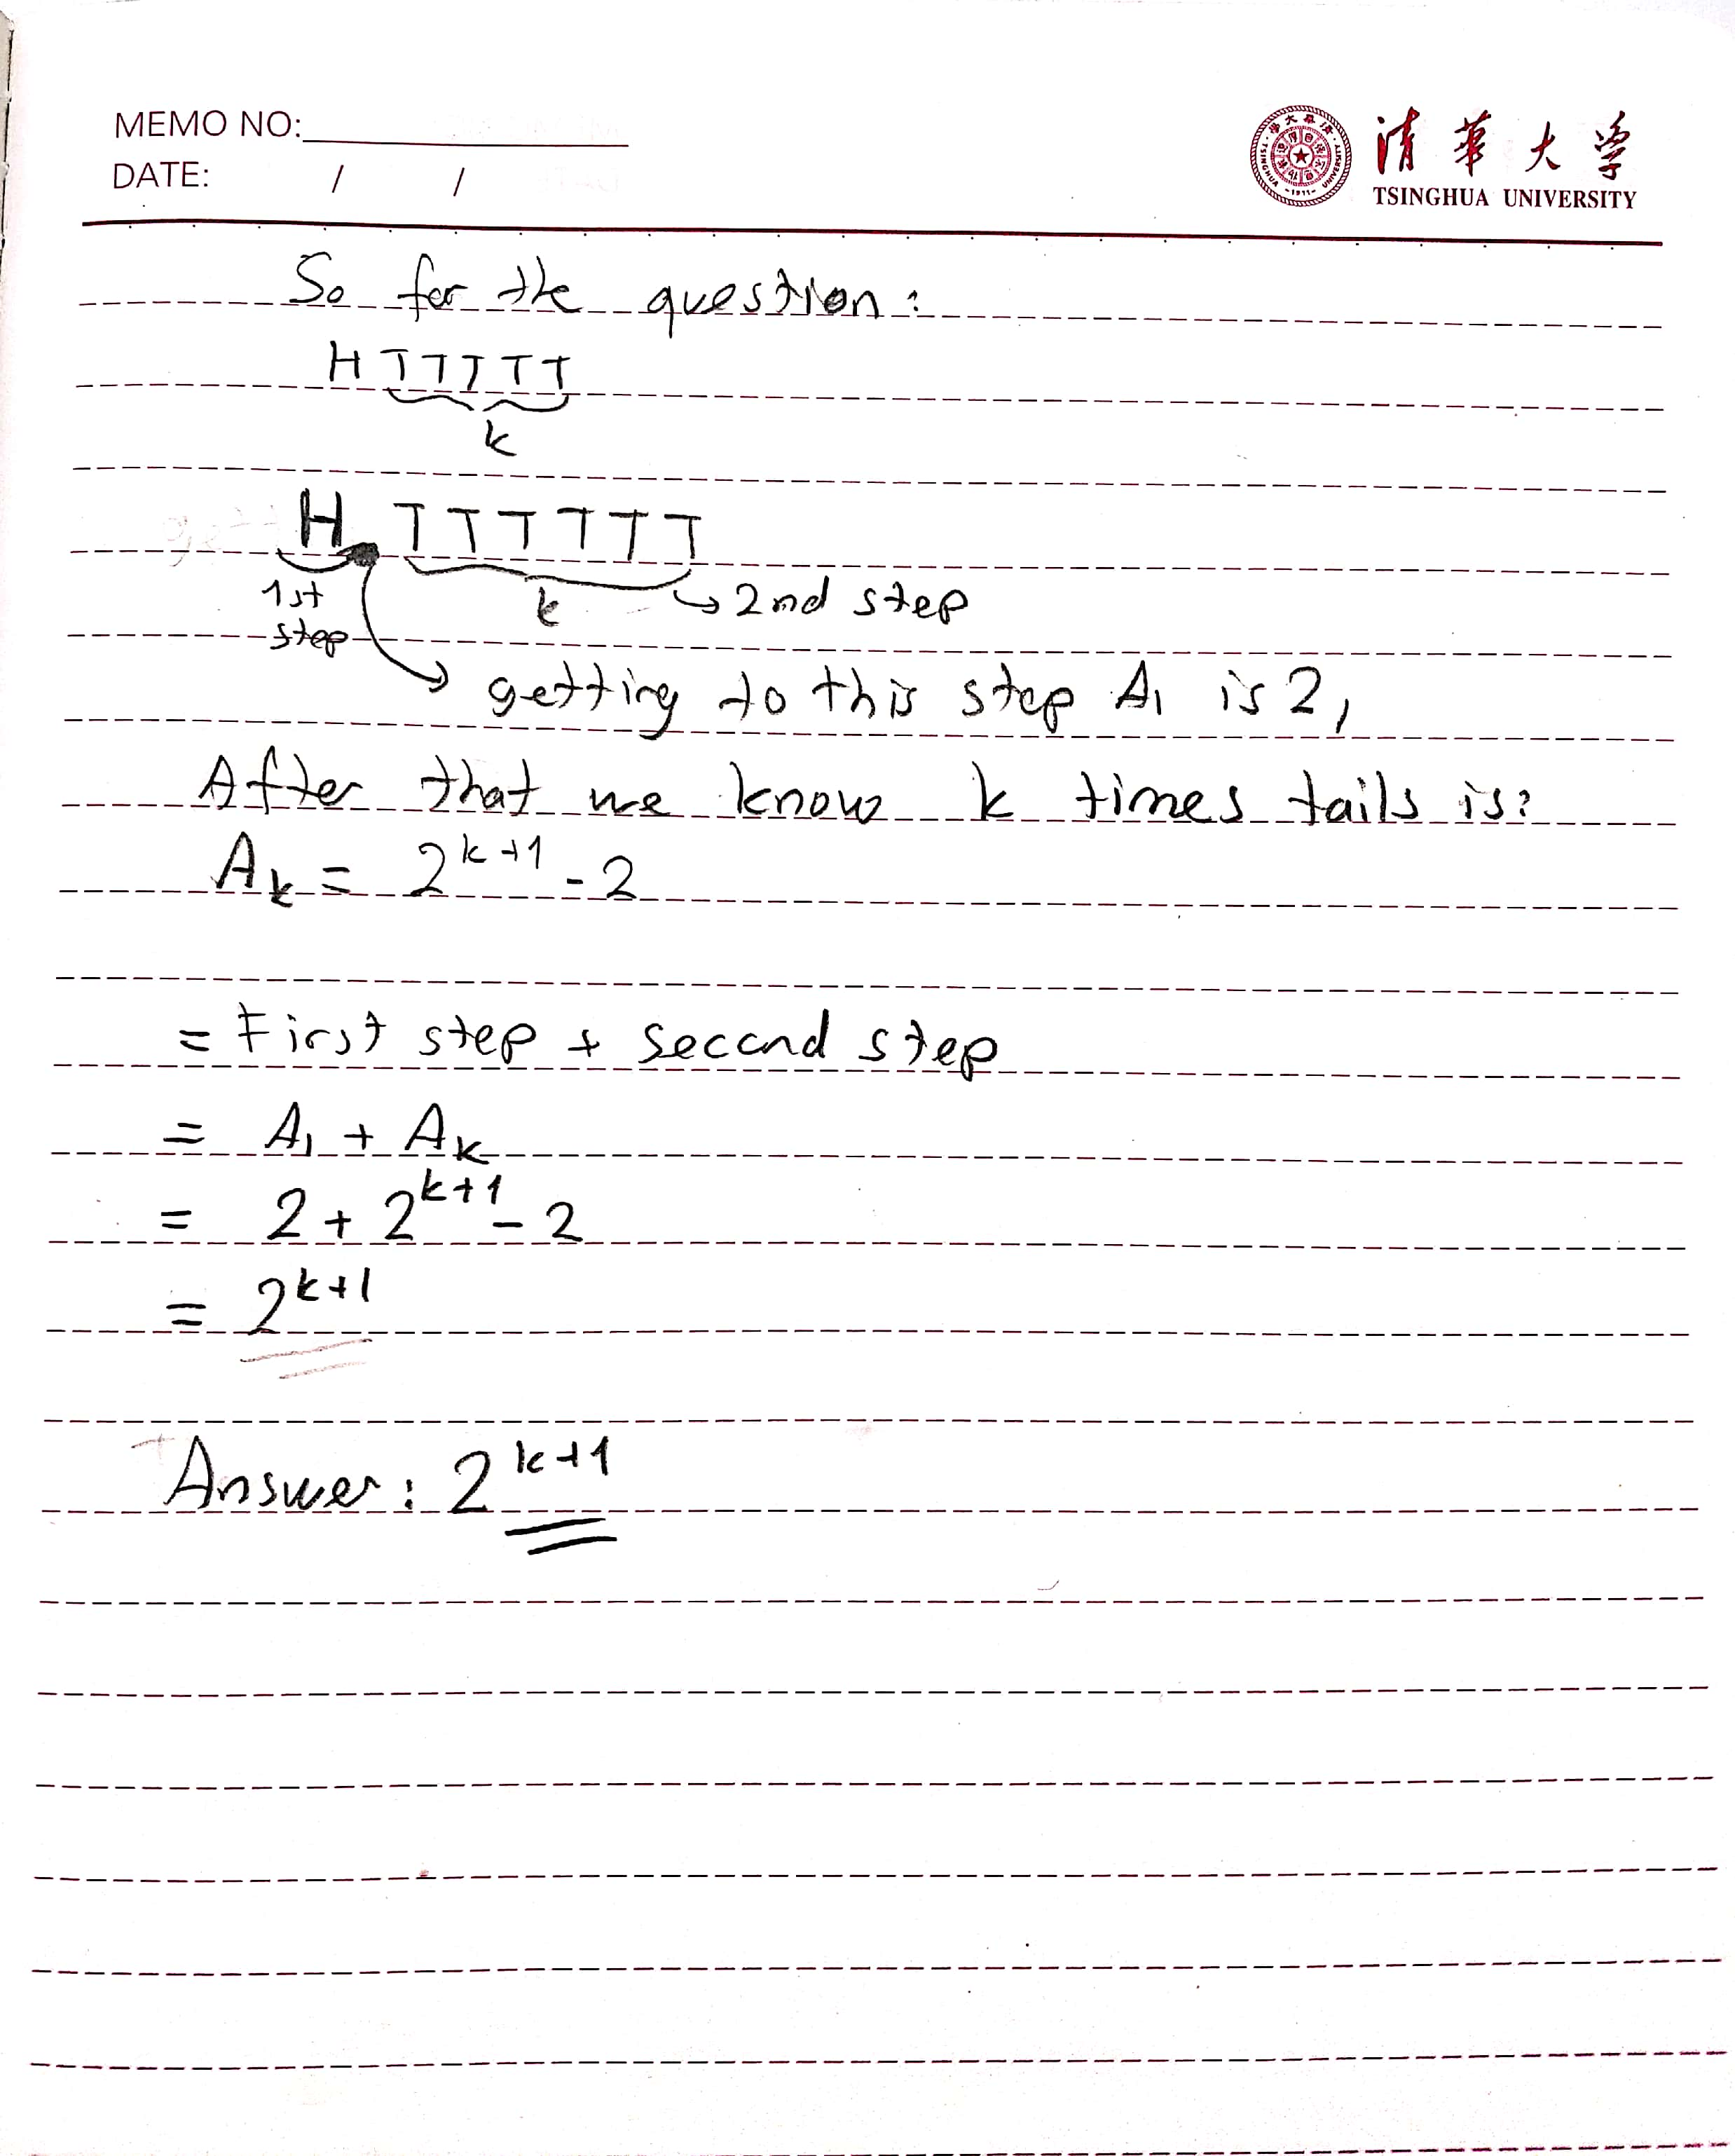 MEMO NO:
DATE: / /
清华大学
TSINGHUA UNIVERSITY
So for the question:
H T T T T T
k
H T T T T T T
1st step
k
2nd step
getting to this step A₁ is 2,
After that we know k times tails is:
Aₖ = 2^{k+1} - 2
= First step + second step
= A₁ + Aₖ
= 2 + 2^{k+1} - 2
= 2^{k+1}
Answer: 2^{k+1}